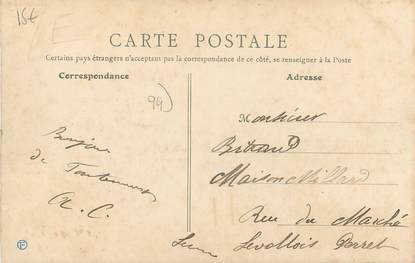 15€
CARTE POSTALE
Certains pays étrangers n'acceptant pas la correspondance de ce côté, se renseigner à la Poste
Correspondance
Adresse
94
Bonjour
de
A. C.
Monsieur
Maison Millard
Rue du Marché
Levallois Perret
Seine